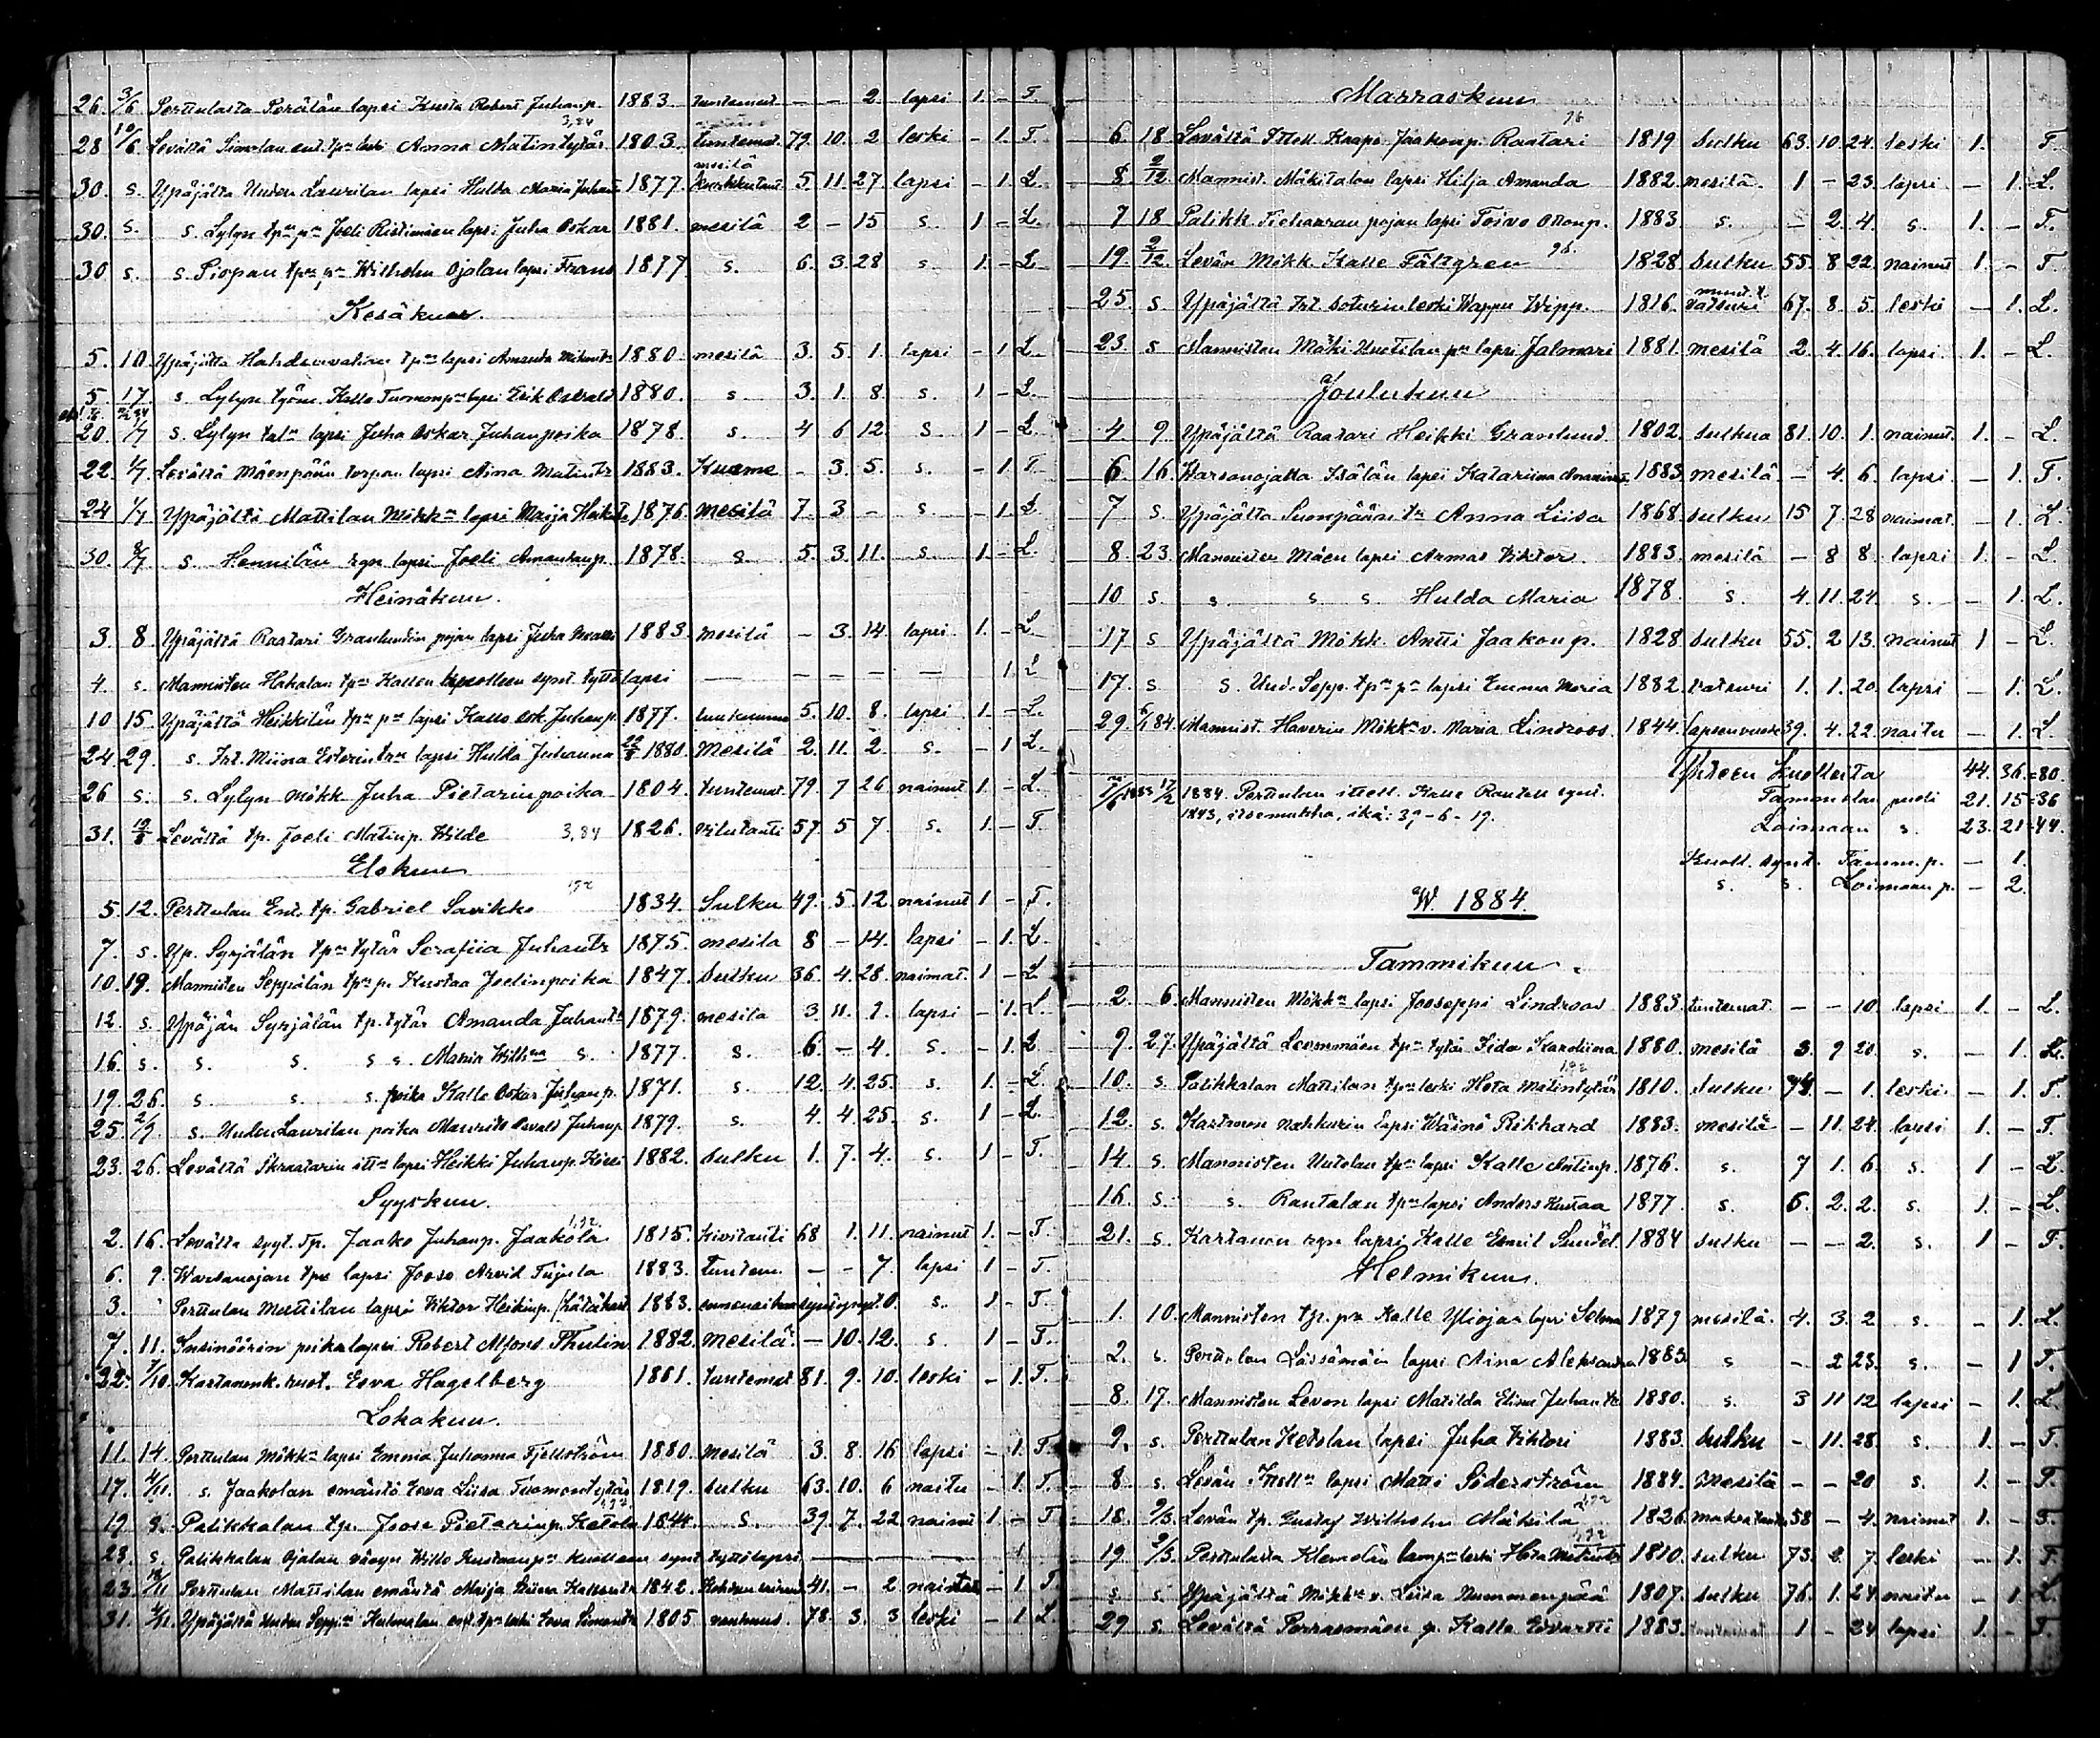 26. 3/6 Perttulasta Perälän lapsi Kusta Robert Juhanp. 1883. tuntemat. – – 2. lapsi 1. – T.
28 10/6 Levältä Simolan ent. tpn leski Anna Matintytär 3,84 1803. tuntemat. 79. 10. 2 leski – 1. T.
30. s. Ypäjältä Uuden Laurilan lapsi Hulda Maria Juhant. 1877. mesilä 5. 11. 27 lapsi – 1. L.
30. s. s. Lylyn tpn pn Joeli Ristimäen lapsi Juha Oskar 1881. mesilä 2 – 15 s. 1 – L.
30 s. s. Piopan tpn pn Wilhelm Ojalan lapsi Frans 1877. s. 6. 3. 28 s. 1. – L.
Kesäkuu.
5. 10. Ypäjältä tpn lapsi Amanda 1880. mesilä 3. 5. 1. lapsi – 1 L.
5. 17. s. Lylyn Kalle Tuomonpn lapsi Erik Oskvald 1880. s 3. 1. 8. s. 1 – L.
20. 1/7 s. Lylyn taln lapsi Juha Oskar Juhanpoika 1878. s. 4 6 12. s 1 – L.
22. 1/7. Levältä Mäenpään torpan lapsi Aina Matintr 1883. Kuume – 3. 5. s. – 1. T.
24 1/7 Ypäjältä Mattilan Mökkn lapsi Maija 1876. Mesilä 7. 3 – s. – 1. L
30. 8/7 s Hennilän lapsi Joeli Amandanp. 1878. s 5. 3. 11. s. 1. – L.
Heinäkuu.
3. 8. Ypäjältä Raatari Granlundin pojan lapsi Juha 1883. mesilä – 3. 14. lapsi 1. – L.
4. s. Mannisten Hakalan tpn Kallen kuolleen synt. tyttölapsi — — — — — 1 L
10 15. Ypäjältä Heikkilän tpn pn lapsi Kalle Osk. Juhanp. 1877. 5. 10. 8. lapsi 1. – L.
24. 29. s. Irt. Miina Esterin lapsi Hulda Juhanna 22/8 1880. Mesilä 2. 11. 2. s. – 1 L.
26 s. s. Lylyn Mökk. Juha Pietarinpoika 1804. tuntemat. 79. 7 26 nainut 1. – L.
31. 12/8 Levältä tp. Joeli Matinp. Wilde 3,84 1826. vilutauti 57. 5 7. s. 1. – T.
Elokuu
5. 12. Perttulan Ent. tp. Gabriel Savikko 1834. Sulku 49. 5. 12. nainut 1 – T.
7. s. Yp. Syrjälän tpn tytär Serafiia Juhantr 1875. mesilä 8 – 14. lapsi – 1. L.
10. 19. Mannisten Seppälän tpn p. Kustaa Joelinpoika 1847. sulku 36. 4. 28. naimat. 1 – L
12. s. Ypäjän Syrjälän tp. tytär Amanda Juhantr 1879. mesilä 3. 11. 2. lapsi – 1. L.
16. s. s. s. s. s. Maria s. 1877. s. 6. – 4. s. – 1. L
19. 26. s. s. s. poika Kalle Oskar Juhanp. 1871. s. 12. 4. 25. s. 1. – L.
25. 2/9 s. Uuden Laurilan poika Maurits Osvald Juhanp 1879. s. 4. 4 25. s. 1 – L
23. 26. Levältä lapsi Heikki Juhanp. 1882. Sulku 1. 7. 4. s. 1 – T.
Syyskuu.
2. 16. Levältä syyt. Tp. Jaako Juhanp. Jaakola 1815. kivitauti 68 1. 11. nainut 1. – T
6. 9. Warsanojan tpn lapsi Jooso Arvid Tujula 1883. Tuntem. – – 7. lapsi 1 – T.
3. Perttulan Mattilan lapsi Viktor Heikinp. 1883. 0. s. 1 – T.
7. 11. Insinöörin poikalapsi Robert Alfons Thulin 1882. Mesilä – 10. 12. s 1 – T.
22. 7/10. Kartanonk. Eeva Hagelberg 1801. tuntemat 81. 9. 10. leski – 1. T.
Lokakuu.
11. 14. Perttulan Mökkn lapsi Emmia Juhanna Fjellström 1880. Mesilä 3. 8. 16 lapsi – 1. T.
17. 4/11. s. Jaakolan emäntä Eeva Liisa Tuomontytär 1819. sulku 63. 10. 6 naitu – 1. T.
19 s. Palikkalan tp. Joose Pietarinp. Ketola 1844. s. 39. 7. 22 nainut 1. – T.
23. s. Palikkalan Ojalan Wille Kustaanpn kuolleen synt tyttölapsi — — — 1
23. 18/11 Perttulan Mattilan emäntä Maija Liina Kallentr 1842. 41. – 2 naintu – 1. T.
31. 4/11. Ypäjältä Uuden Seppn ent. tpn leski Eeva Simontr 1805 vanhuus. 78. 3. 3 leski – 1. L.
Marraskuu
6. 18 Levältä Ittell. Kaapo Jaakonp. Raatari 96 1819 Sulku 63. 10. 24. leski 1. T.
8. 2/12. Mannist. Mäkitalon lapsi Hilja Amanda 1882. mesilä. 1 – 23. lapsi. – 1. L.
7 18 Palikk. pojan lapsi Toivo Ottonp. 1883 s. – 2. 4. s. 1. – T.
19. 2/12. Levän Mökk. Kalle Fältgren 96. 1828. Sulku 55. 8 22. nainut 1. – T.
25. s Ypäjältä Irt. Soturin leski Wappu Wipp. 1816. vatsuri 67. 8. 5. leski – 1. L.
23. s Mannisten Mäki-Uutilan pn lapsi Jalmari 1881. mesilä 2. 4. 16. lapsi 1. – L.
Joulukuu
4. 9. Ypäjältä Raatari Heikki Granlund 1802. sulkua 81. 10. 1. nainut 1. – L.
6. 16. Warsanojalta Isälän lapsi Katariina 1883. mesilä – 4. 6. lapsi. – 1. T.
7 s. Ypäjältä Sumpään tr Anna Liisa 1868. sulku 15 7. 28 naimat. – 1. L.
8. 23. Mannisten Mäen lapsi Armas Viktor. 1883. mesilä – 8 8. lapsi 1. – L.
10 s. s s s. Hulda Maria 1878. s. 4. 11. 24. s. – 1. L.
17. s Ypäjältä Mökk. Antti Jaakonp. 1828. sulku 55. 2 13. nainut 1 – L.
17. s. s. Uud. Sepp. tpn pn lapsi Emma Maria 1882. vatsuri 1. 1. 20. lapsi – 1. L.
29. 6/1 84. Mannist. Haverin Mökkn v. Maria Lindroos. 1844. lapsenvuode 39. 4. 22. naitu – 1. L
Yhteen kuolleita 44. 36. = 80.
Tammelan puoli 21. 15 = 36
Loimaan s. 23. 21 = 44.
1883 17/2 1884. Perttulan ittell. Kalle Rantell synt.
1843, itsemurha, ikä: 39 – 6 – 19.
Kuoll. synt. Tamm. p. – 1.
s. s. Loimaan p. – 2.
W. 1884.
Tammikuu.
2. 6. Mannisten Mökkn lapsi Jooseppi Lindroos 1883. tuntemat. – – 10. lapsi 1. – L.
9. 27. Ypäjältä Leommäen tpn tytär Iida Karoliina 1880. mesilä 3. 9 20. s. – 1. L.
10. s. Palikkalan Mattilan tpn leski Heta Matintytär 1810. Sulku 74. – 1. leski. – 1. T.
12. s. Kartanon nahkurin lapsi Wäinö Rikhard 1883. mesilä – 11. 24. lapsi 1. – T.
14. s. Mannisten Uutolan tpn lapsi Kalle Antinp. 1876. s. 7 1. 6. s. 1 – L.
16. s. s. Rantalan tpn lapsi Anders Kustaa 1877 s. 6. 2. 2. s. 1. – L.
21. s. Kartanon lapsi Kalle Eemil Sundel. 1884 sulku – – 2. s. 1 – T.
Helmikuu.
1. 10. Mannisten tp. pn Kalle Yliojan lapsi Selma 1879 mesilä. 4. 3. 2 s. – 1. L.
2. s. Perttulan Lässämäin lapsi Aina Aleksandra 1883. s – 2 23. s. – 1 T.
8. 17. Mannisten Leven lapsi Matilda Elina Juhantr 1880. s. 3 11 12 lapsi – 1. L
9. s. Perttulan Ketolan lapsi Juha Viktori 1883. Sulku – 11. 28. s. 1. – T.
8. s. Levän Ittelln lapsi Matti Söderström 1884. Mesilä – – 20 s. 1. – T.
18. 9/3. Levän tp. Gustaf Wilhelm Mäkilä 1826. maksatauti 58 – 4. nainut 1. – T.
19 9/3. Perttulasta Klemolan lampn leski Heta Matintr 1810. sulku 73. 2. 7. leski – 1. T.
s s. Ypäjältä Mökkn v. Liisa Nummenpää 1807. sulku 76. 1. 24. naitu – 1. L.
29 s. Levältä Porrasmäen p. Kalle Edvartti 1883. tuntemat 1 – 24 lapsi 1. – T.